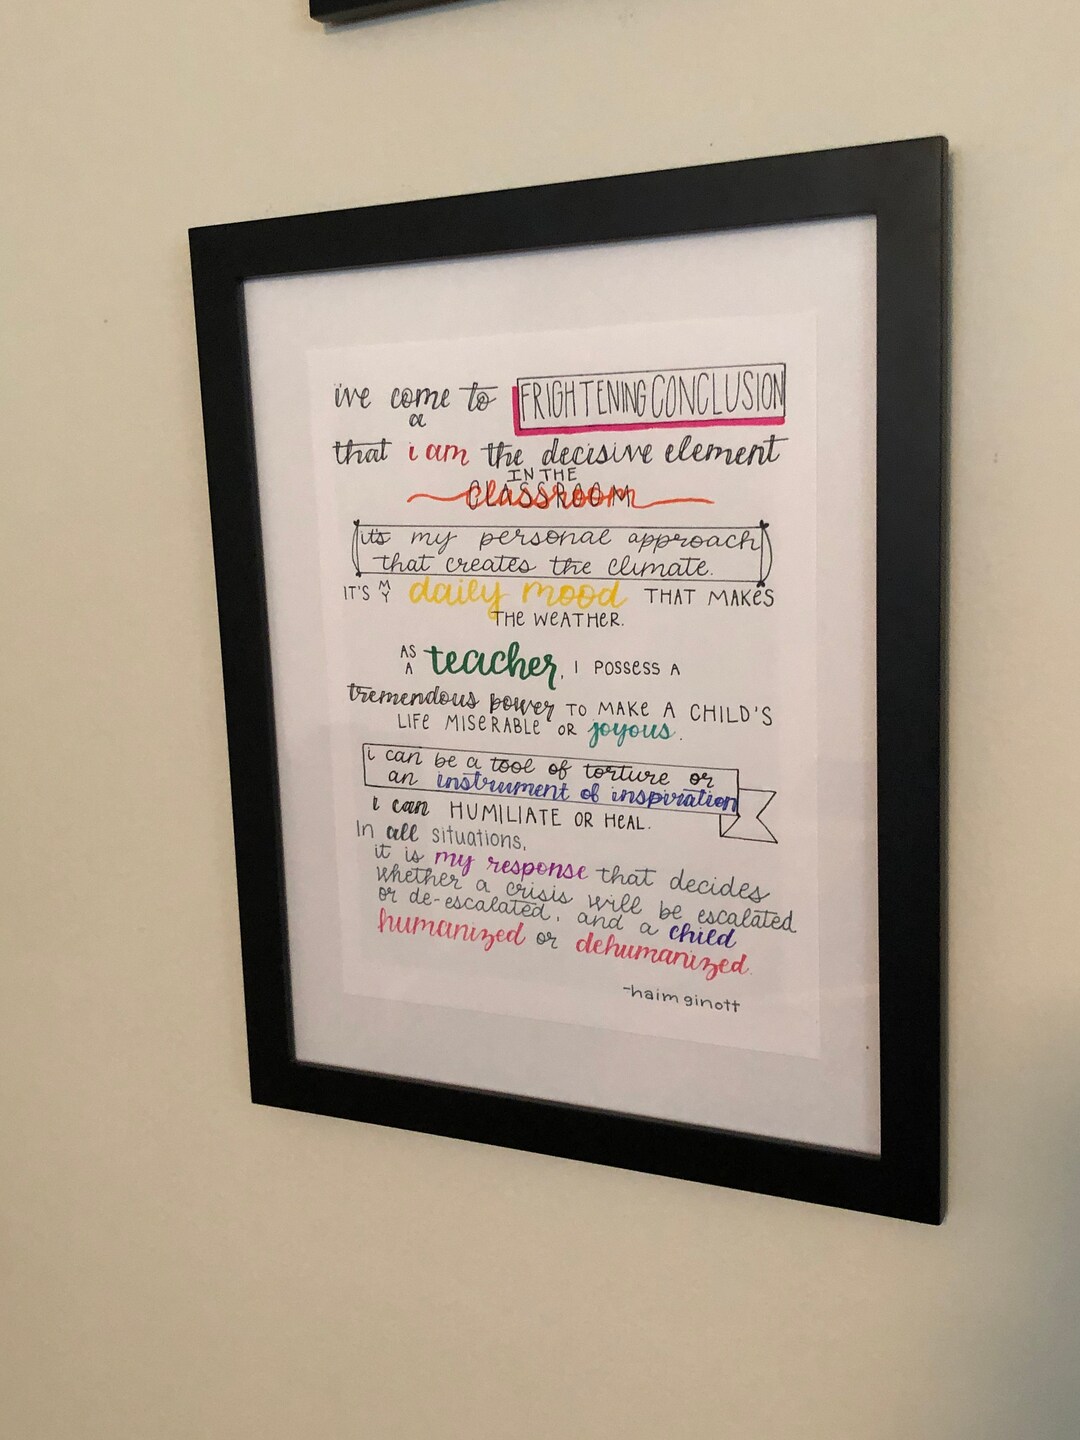 i've come to a FRIGHTENING CONCLUSION
that i am the decisive element
IN THE
CLASSROOM
it's my personal approach
that creates the climate.
IT'S MY daily mood THAT MAKES
THE WEATHER.
AS A teacher, I POSSESS A
tremendous power TO MAKE A CHILD'S
LIFE MISERABLE OR joyous.
i can be a tool of torture or
an instrument of inspiration
i can HUMILIATE OR HEAL.
In all situations,
it is my response that decides
whether a crisis will be escalated
or de-escalated, and a child
humanized or dehumanized.
-haim ginott